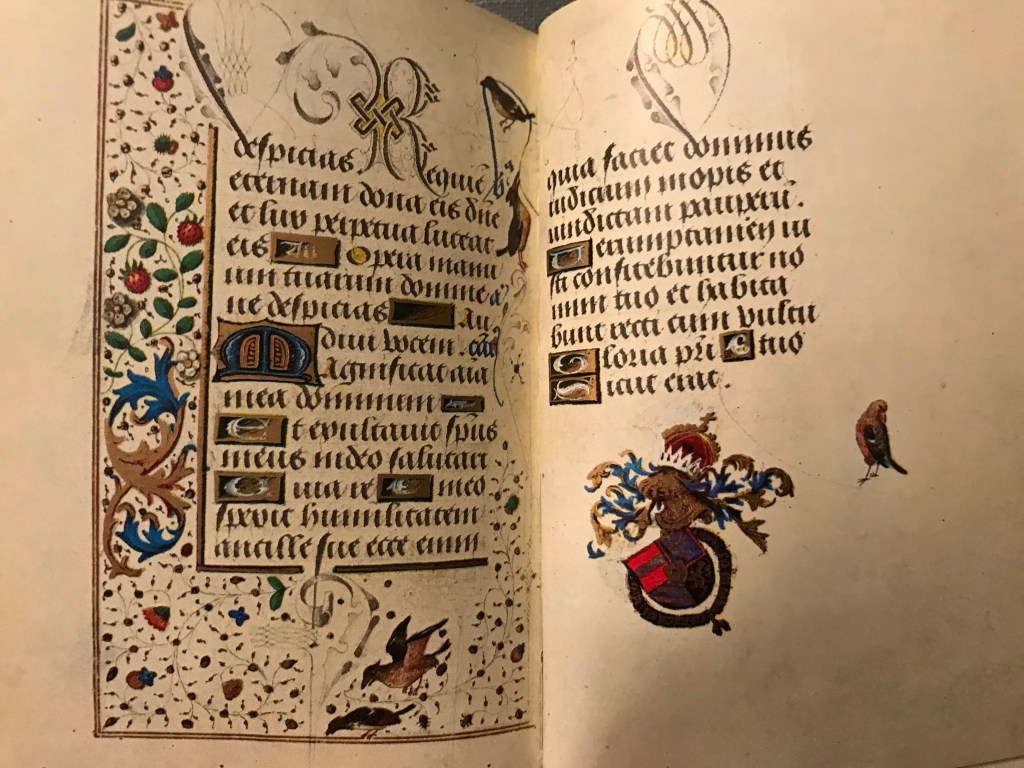 despicias. Requiē
eternam dona eis dn̄e
et lux perpetua luceat
eis Opera manu
um tuarum domine
ne despicias Au
diui vocem . cāt
Magnificat aīa
mea dominum
Et exultauit sp̄us
meus in deo salutari
Quia re meo
spexit humilitatem
ancille sue ecce enim
quia faciet dominus
iudicium inopis et
uindictam pauperū.
Uerumptamen iu
sti confitebuntur no
mini tuo et habita
bunt recti cum vultu
Gloria pr̄i tuo
Sicut erat.